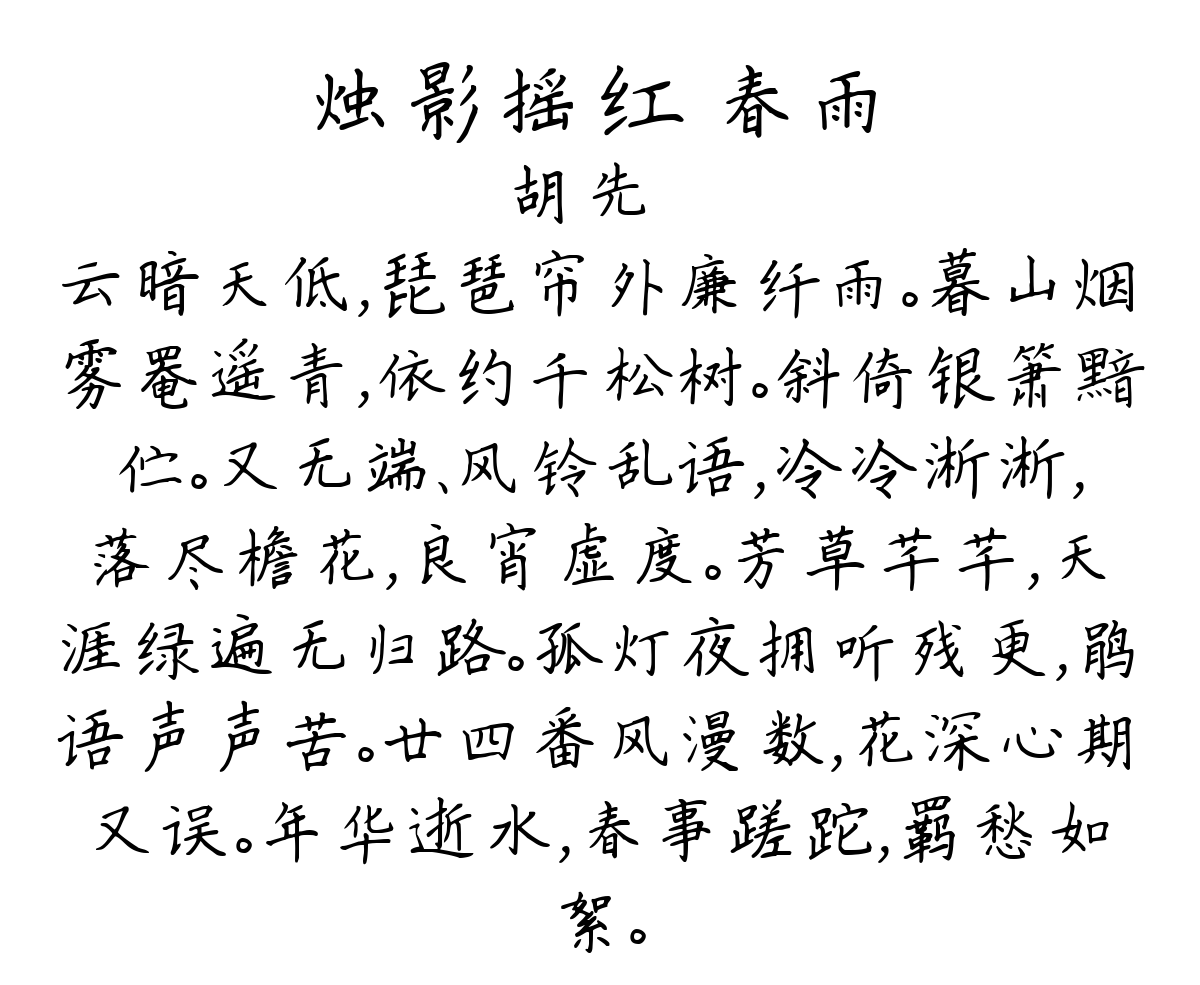 烛影摇红 春雨
胡先
云暗天低,琵琶帘外廉纤雨。暮山烟
雾罨遥青,依约千松树。斜倚银箫黯
伫。又无端、风铃乱语,冷冷淅淅,
落尽檐花,良宵虚度。芳草芊芊,天
涯绿遍无归路。孤灯夜拥听残更,鹃
语声声苦。廿四番风漫数,花深心期
又误。年华逝水,春事蹉跎,羁愁如
絮。